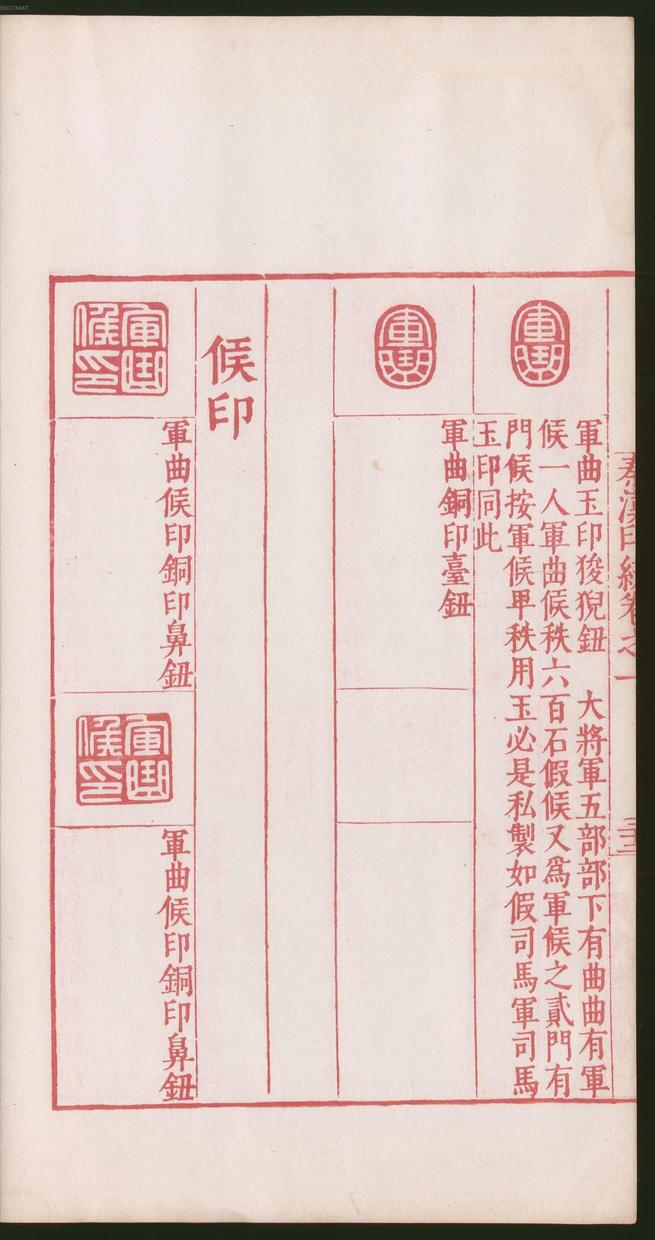 00073467
秦漢印統卷之一
三十三
軍曲
軍曲玉印狻猊鈕　大將軍五部部下有曲曲有軍
候一人軍曲候秩六百石假候又為軍候之貳門有
門候按軍候卑秩用玉必是私製如假司馬軍司馬
玉印同此
軍曲
軍曲銅印臺鈕
候印
軍曲候印
軍曲候印銅印鼻鈕
軍曲候印
軍曲候印銅印鼻鈕